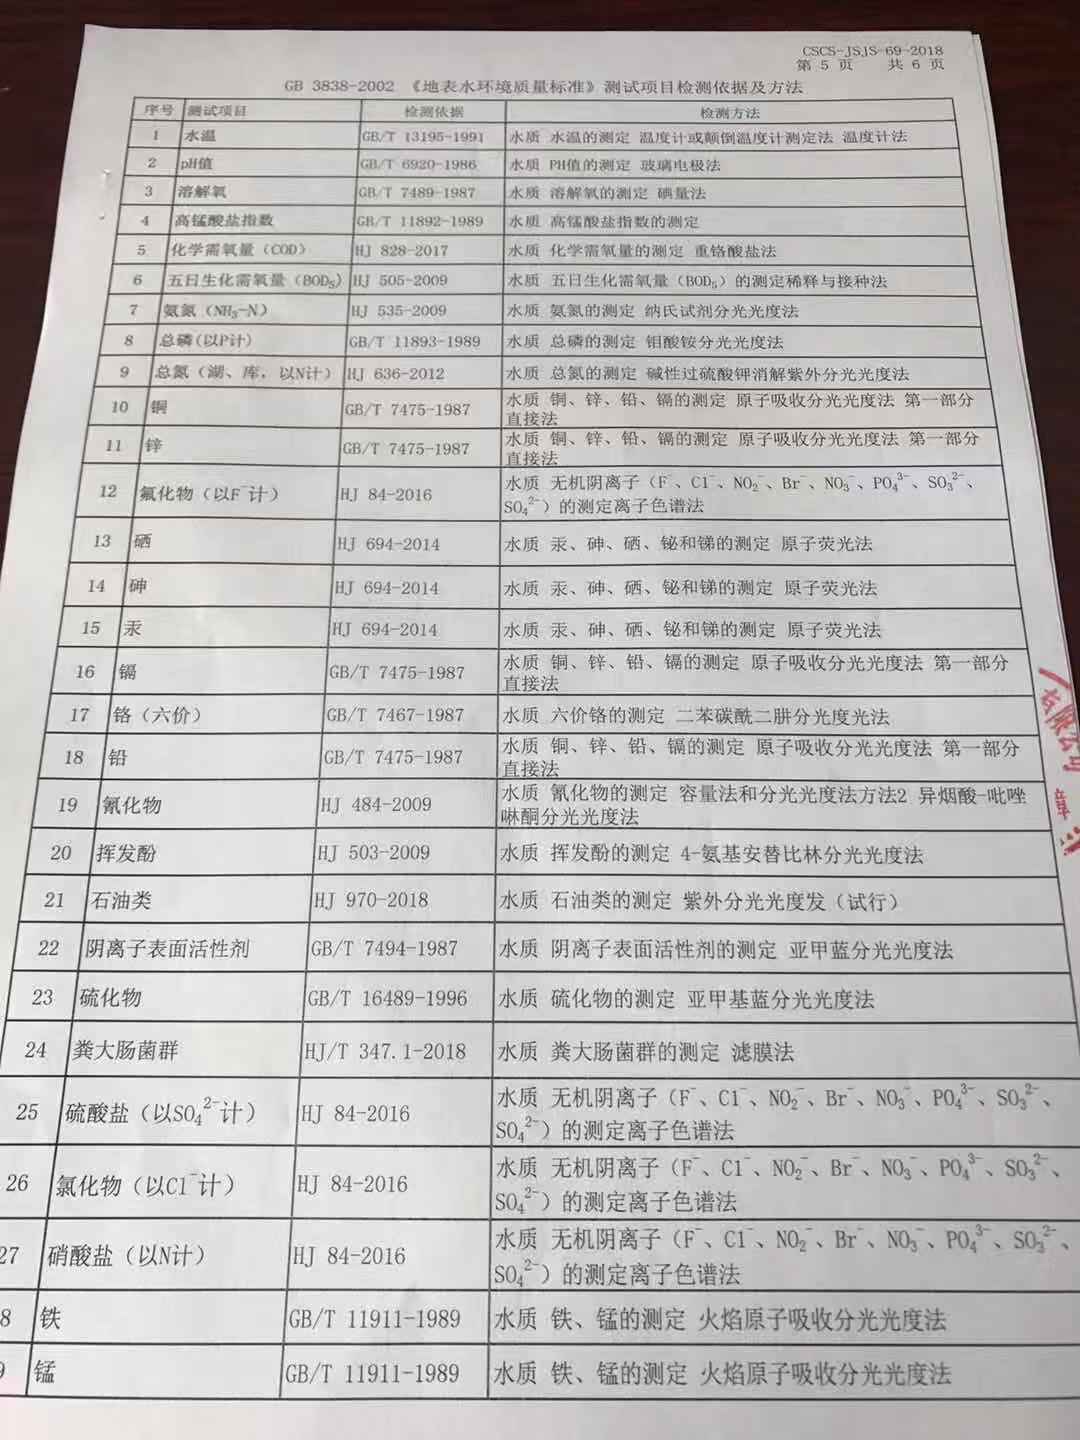 CSCS-JSJS-69-2018
第 5 页 共 6 页
GB 3838-2002 《地表水环境质量标准》测试项目检测依据及方法
序号 测试项目 检测依据 检测方法
1 水温 GB/T 13195-1991 水质 水温的测定 温度计或颠倒温度计测定法 温度计法
2 pH值 GB/T 6920-1986 水质 PH值的测定 玻璃电极法
3 溶解氧 GB/T 7489-1987 水质 溶解氧的测定 碘量法
4 高锰酸盐指数 GB/T 11892-1989 水质 高锰酸盐指数的测定
5 化学需氧量（COD） HJ 828-2017 水质 化学需氧量的测定 重铬酸盐法
6 五日生化需氧量（BOD₅） HJ 505-2009 水质 五日生化需氧量（BOD₅）的测定稀释与接种法
7 氨氮（NH₃-N） HJ 535-2009 水质 氨氮的测定 纳氏试剂分光光度法
8 总磷(以P计) GB/T 11893-1989 水质 总磷的测定 钼酸铵分光光度法
9 总氮（湖、库，以N计） HJ 636-2012 水质 总氮的测定 碱性过硫酸钾消解紫外分光光度法
10 铜 GB/T 7475-1987 水质 铜、锌、铅、镉的测定 原子吸收分光光度法 第一部分
直接法
11 锌 GB/T 7475-1987 水质 铜、锌、铅、镉的测定 原子吸收分光光度法 第一部分
直接法
12 氟化物（以F⁻计） HJ 84-2016 水质 无机阴离子（F⁻、Cl⁻、NO₂⁻、Br⁻、NO₃⁻、PO₄³⁻、SO₃²⁻、
SO₄²⁻）的测定离子色谱法
13 硒 HJ 694-2014 水质 汞、砷、硒、铋和锑的测定 原子荧光法
14 砷 HJ 694-2014 水质 汞、砷、硒、铋和锑的测定 原子荧光法
15 汞 HJ 694-2014 水质 汞、砷、硒、铋和锑的测定 原子荧光法
16 镉 GB/T 7475-1987 水质 铜、锌、铅、镉的测定 原子吸收分光光度法 第一部分
直接法
17 铬（六价） GB/T 7467-1987 水质 六价铬的测定 二苯碳酰二肼分光度光法
18 铅 GB/T 7475-1987 水质 铜、锌、铅、镉的测定 原子吸收分光光度法 第一部分
直接法
19 氰化物 HJ 484-2009 水质 氰化物的测定 容量法和分光光度法方法2 异烟酸-吡唑
啉酮分光光度法
20 挥发酚 HJ 503-2009 水质 挥发酚的测定 4-氨基安替比林分光光度法
21 石油类 HJ 970-2018 水质 石油类的测定 紫外分光光度发（试行）
22 阴离子表面活性剂 GB/T 7494-1987 水质 阴离子表面活性剂的测定 亚甲蓝分光光度法
23 硫化物 GB/T 16489-1996 水质 硫化物的测定 亚甲基蓝分光光度法
24 粪大肠菌群 HJ/T 347.1-2018 水质 粪大肠菌群的测定 滤膜法
25 硫酸盐（以SO₄²⁻计） HJ 84-2016 水质 无机阴离子（F⁻、Cl⁻、NO₂⁻、Br⁻、NO₃⁻、PO₄³⁻、SO₃²⁻、
SO₄²⁻）的测定离子色谱法
26 氯化物（以Cl⁻计） HJ 84-2016 水质 无机阴离子（F⁻、Cl⁻、NO₂⁻、Br⁻、NO₃⁻、PO₄³⁻、SO₃²⁻、
SO₄²⁻）的测定离子色谱法
27 硝酸盐（以N计） HJ 84-2016 水质 无机阴离子（F⁻、Cl⁻、NO₂⁻、Br⁻、NO₃⁻、PO₄³⁻、SO₃²⁻、
SO₄²⁻）的测定离子色谱法
8 铁 GB/T 11911-1989 水质 铁、锰的测定 火焰原子吸收分光光度法
9 锰 GB/T 11911-1989 水质 铁、锰的测定 火焰原子吸收分光光度法
有限公司
章